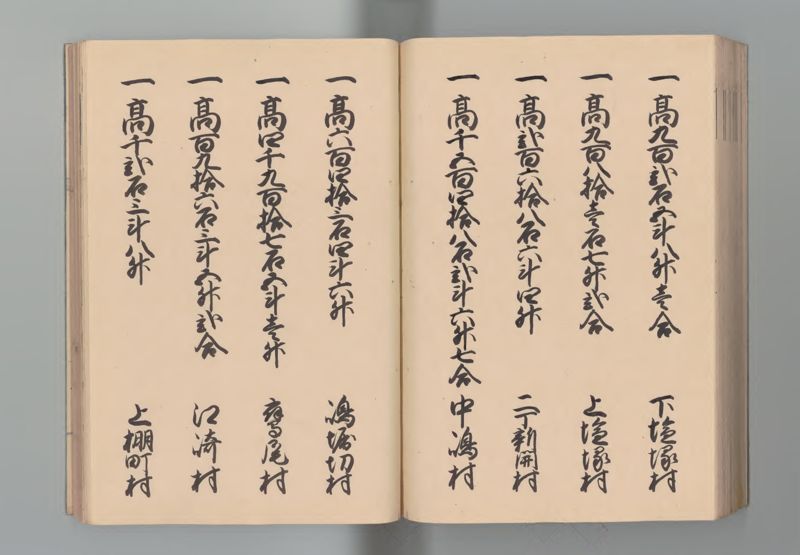 一 高九百弐石五斗八升壱合 下塩塚村
一 高九百八拾壱石七升弐合 上塩塚村
一 高弐百六拾八石六斗四升 二丁新開村
一 高千五百四拾八石弐斗六升七合 中嶋村
一 高六百四拾三石四斗六升 嶋堀切村
一 高四千九百拾七石五斗壱升 鷹尾村
一 高百九拾六石三斗五升弐合 江崎村
一 高千弐石三斗八升 上棚町村